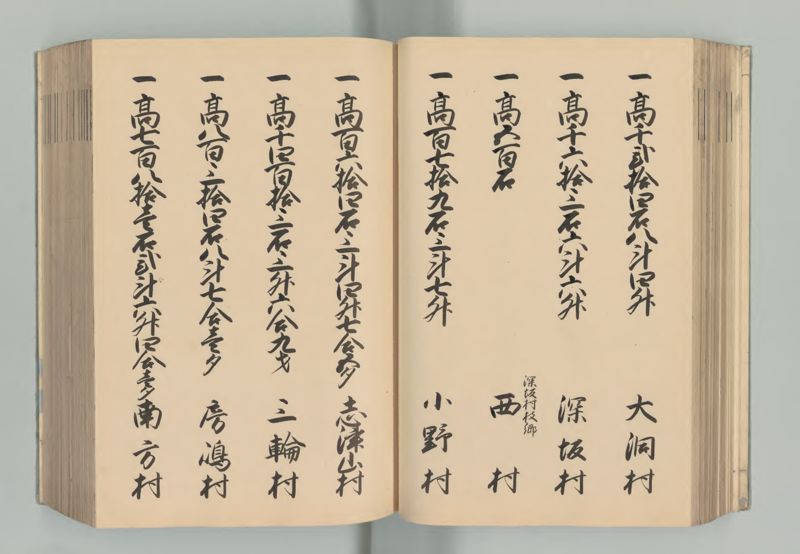 一高千弐拾四石八斗四升 大洞村
一高千六拾三石六斗六升 深坂村
深坂村枝郷
一高五百石 西村
一高百七拾九石三斗七升 小野村
一高百六拾四石三斗四升七合五夕 志津山村
一高千四百拾三石三升六合九才 三輪村
一高八百三拾四石八斗七合壱夕 房嶋村
一高七百八拾壱石弐斗六升四合壱夕 南方村